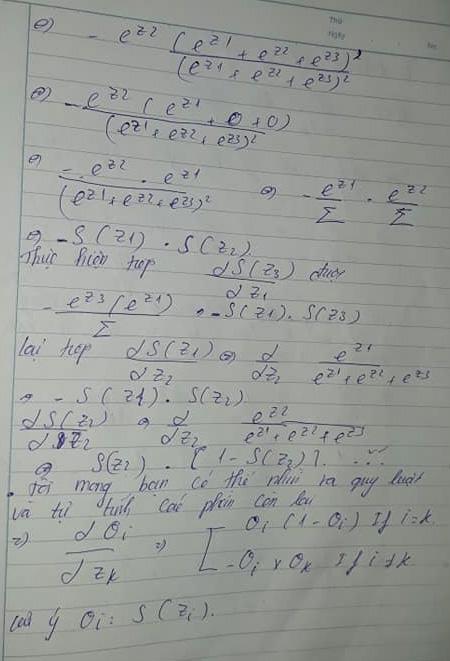 Thứ
Ngày
No.
⇔) - e^{z2} (e^{z1} + e^{z2} + e^{z3})' / (e^{z1} + e^{z2} + e^{z3})^2
⇔) - e^{z2} (e^{z1} + 0 + 0) / (e^{z1} + e^{z2} + e^{z3})^2
⇔) - e^{z2} . e^{z1} / (e^{z1} + e^{z2} + e^{z3})^2 ⇔) - e^{z1} / Σ . e^{z2} / Σ
⇔) - S(z1) . S(z2).
Thực hiện tiếp dS(z3) / dz1 được
- e^{z3} (e^{z1}) / Σ = -S(z1) . S(z3)
Lại tiếp dS(z1) / dz2 ⇔) d / dz2 e^{z1} / e^{z1} + e^{z2} + e^{z3}
⇔ - S(z1) . S(z2)
dS(z2) / dz2 ⇔ d / dz2 e^{z2} / e^{z1} + e^{z2} + e^{z3}
⇔ S(z2) . [1 - S(z2)]. ...
. Tôi mong bạn có thể nhìn ra quy luật
và tự tính các phần còn lại
=) dOi / dzk =) [ Oi (1 - Oi) If i = k.
- Oi x Ok If i ≠ k
Lưu ý Oi = S(zi).